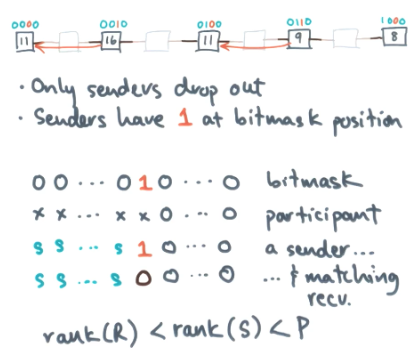 0000 0010 0100 0110 1000
11 16 11 9 8
· Only senders drop out
· Senders have 1 at bitmask position
0 0 ··· 0 1 0 ··· 0 bitmask
x x ··· x x 0 ··· 0 participant
s s ··· s 1 0 ··· 0 a sender...
s s ··· s 0 0 ··· 0 ... & matching
recv.
rank(R) < rank(S) < P